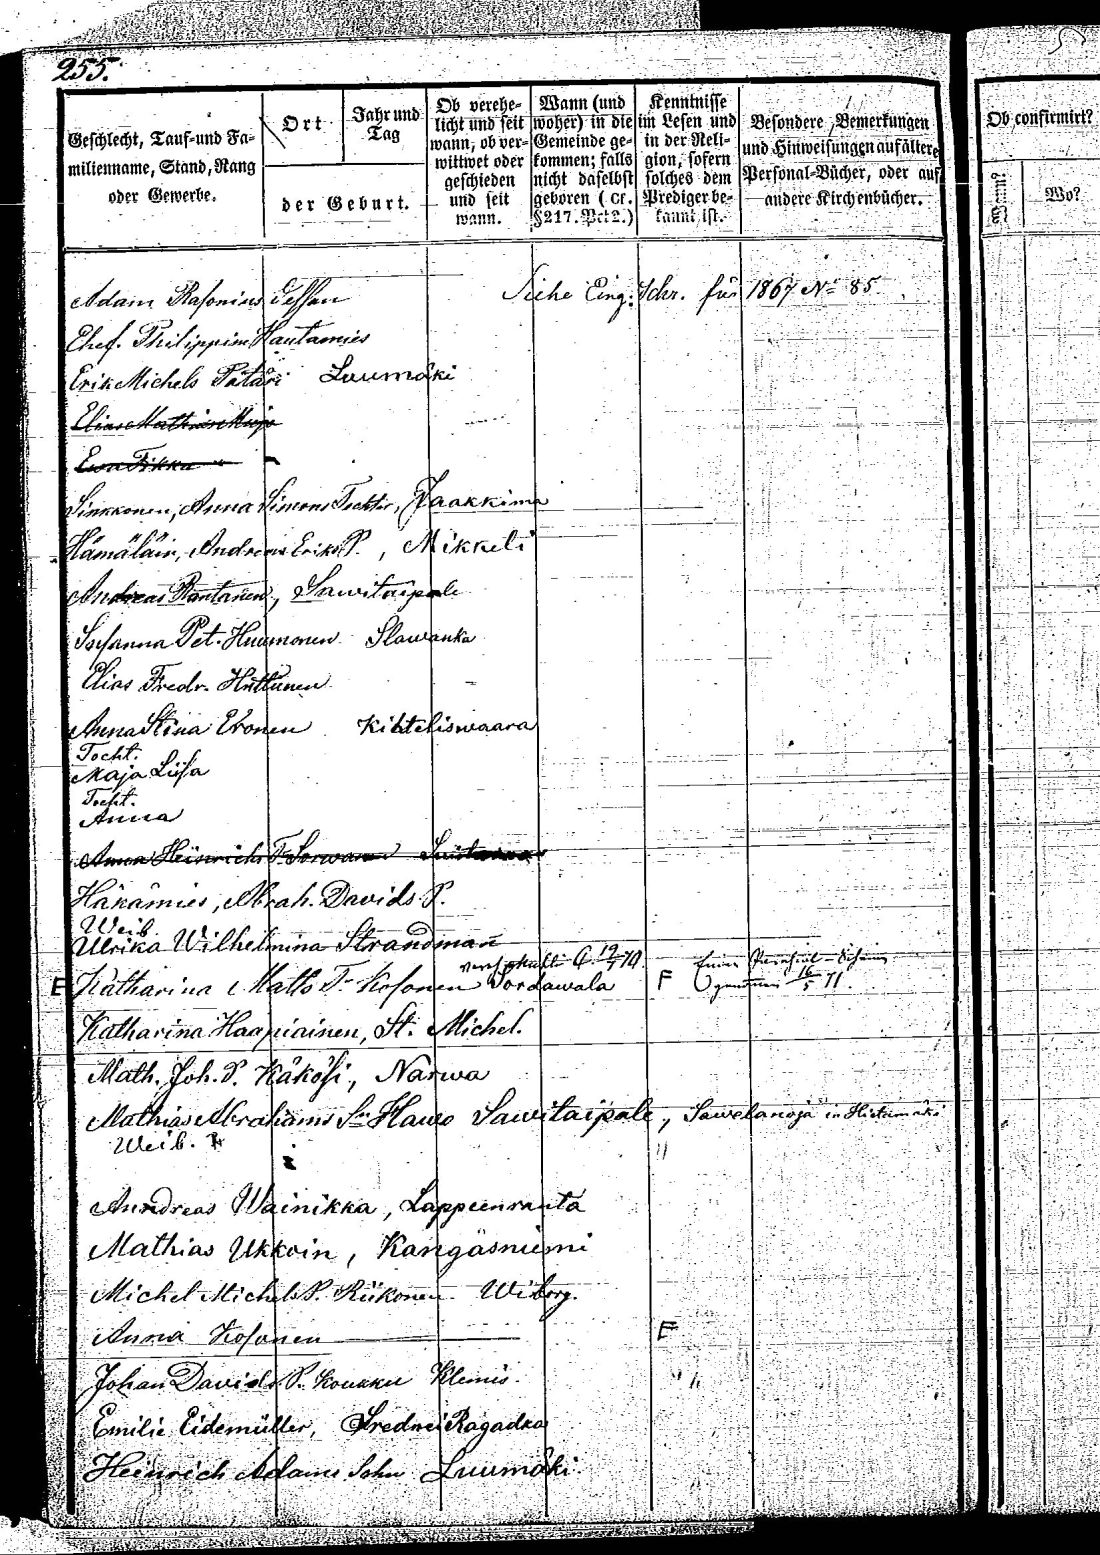 255.
Geschlecht, Tauf- und Fa-
milienname, Stand, Rang
oder Gewerbe.
Ort
Jahr und
Tag
der Geburt.
Ob verehe-
licht und seit
wann, ob ver-
wittwet oder
geschieden
und seit
wann.
Wann (und
woher) in die
Gemeinde ge-
kommen; falls
nicht daselbst
geboren (cf.
§ 217. Pct 2.)
Kenntnisse
im Lesen und
in der Reli-
gion, sofern
solches dem
Prediger be-
kannt ist.
Besondere Bemerkungen
und Hinweisungen auf ältere
Personal-Bücher, oder auf
andere Kirchenbücher.
Ob confirmirt?
Wann?
Wo?
Adam Siehe Eing. Schr. für 1867 No 85
Philippine Hautamies
Erik Michels Pätäri Luumäki
Elias Mathias
Ewa Tikka
Sinkkonen, Anna Simons Tochter, Jaakkima
Hämäläin, Andreas Eriks P., Mikkeli
Andreas Rantanen, Sawitaipale
Susanna Pet. Huumonen Slawanka
Elias Fredr. Huttunen
Anna Stina Eronen Kihteliswaara
Tocht.
Maja Lisa
Tocht.
Anna
Anna Heinrichs T. Sorwari
Häkämies, Abrah. Davids P.
Weib
Ulrika Wilhelmina Strandman
E Katharina Matts T. Kosonen Sordawala F
Katharina Haapiainen, St. Michel.
Math. Joh. P. Käkösi, Narwa
Mathias Abrahams Sn Hawo Sawitaipale, Sawolanoja in Hietamäki
Weib.
Anndreas Wainikka, Lappeenranta
Mathias Ukkoin, Kangäsniemi
Michel Michels P. Riikonen Wiborg.
Anna Kosonen F
Johan Davids P. Koukku Klemis.
Emilie Eidemüller, Srednei Ragadka
Heinrich Adams Sohn Luumäki